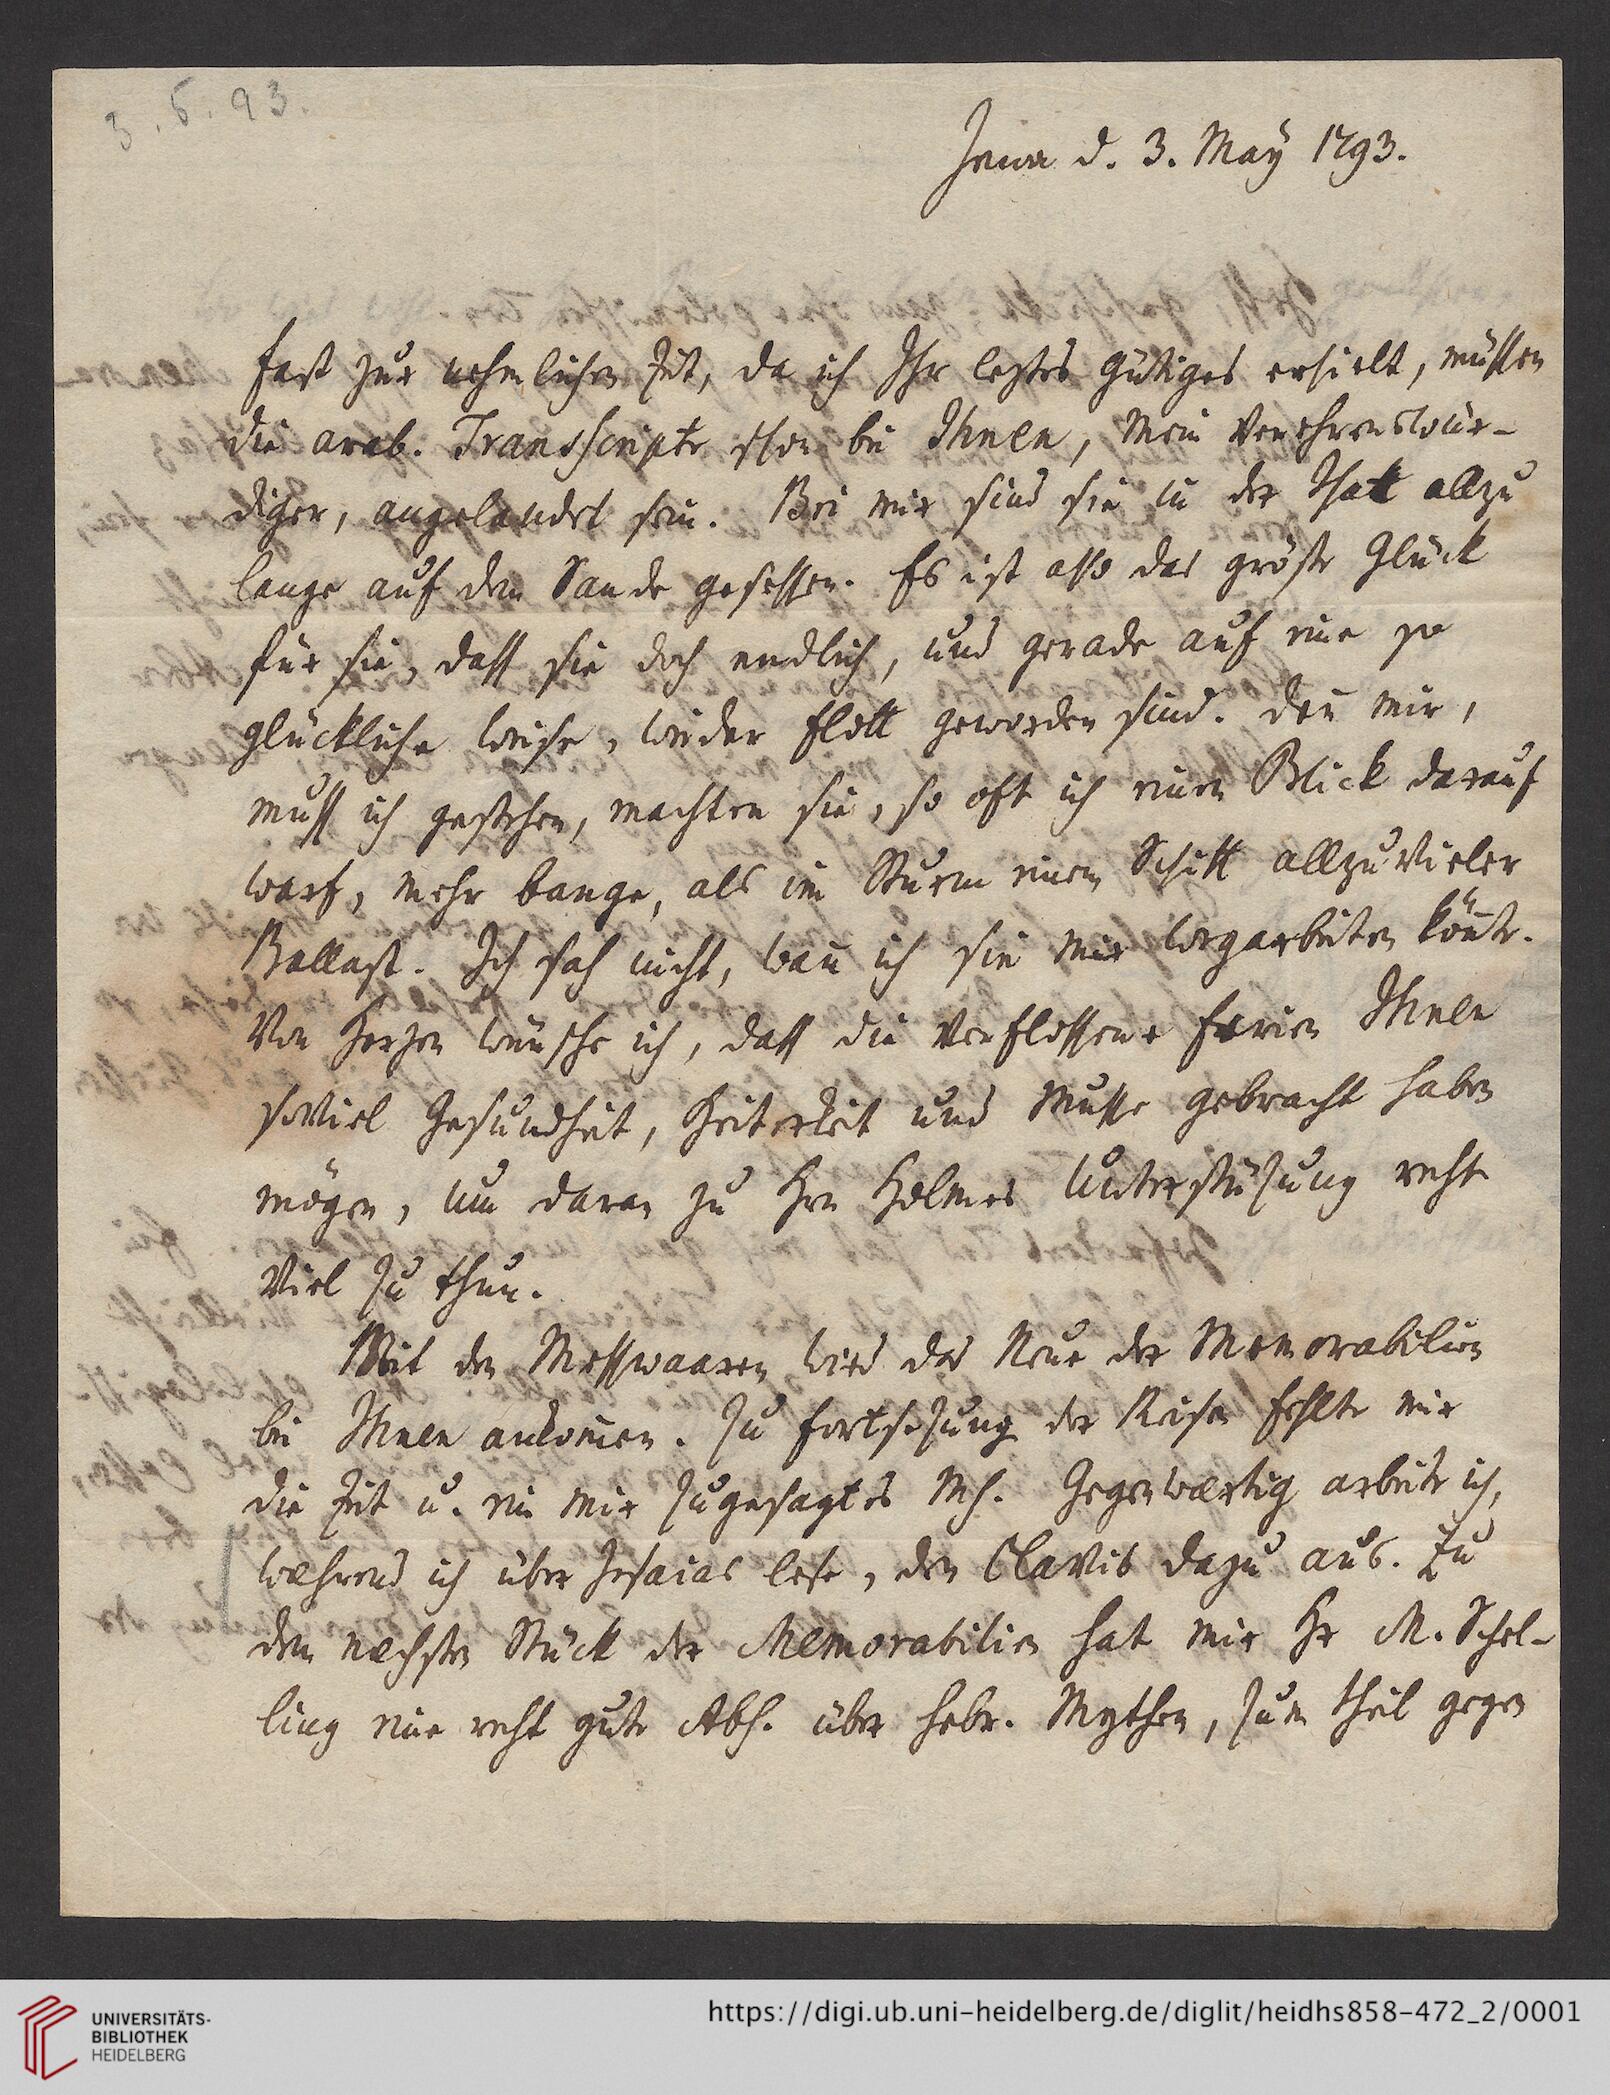 3. 5. 93.
Jena d. 3. May 1793.
Fast zur nehmlichen Zeit, da ich Ihr leztes Gütiges erhielt, müssen
die arab. Transscripte schon bei Ihnen, Mein Verehrenswür-
diger, angelandet sein. Bei mir sind sie in der That allzu
lange auf dem Sande gesessen. Es ist also das gröste Glück
für sie, dass sie doch endlich, und gerade auf eine so
glückliche Weise, wieder flott geworden sind. Deñ mir,
muss ich gestehen, machten sie, so oft ich einen Blick darauf
warf, mehr bange, als im Sturm einem Schiff allzuvieler
Ballast. Ich sah nicht, wañ ich sie mir wegarbeiten köñte.
Von Herzen wünsche ich, dass die verflossene Ferien Ihnen
soviel Gesundheit, Heiterkeit und Musse gebracht haben
mögen, um daran zu Hrn Holmes Unterstüzung recht
viel zu thun.
Mit den Messwaaren wird das Neue der Memorabilien
bei Ihnen ankom̃en. Zu Fortsezung der Reisen fehlte mir
die Zeit u. ein mir zugesagtes Ms. Gegenwærtig arbeite ich,
wæhrend ich über Jesaias lese, den Clavis dazu aus. Zu
dem næchsten Stück der Memorabilien hat mir Hr M. Schel-
ling eine recht gute Abh. über hebr. Mythen, zum Theil gegen
UNIVERSITÄTS-
BIBLIOTHEK
HEIDELBERG
https://digi.ub.uni-heidelberg.de/diglit/heidhs858-472_2/0001